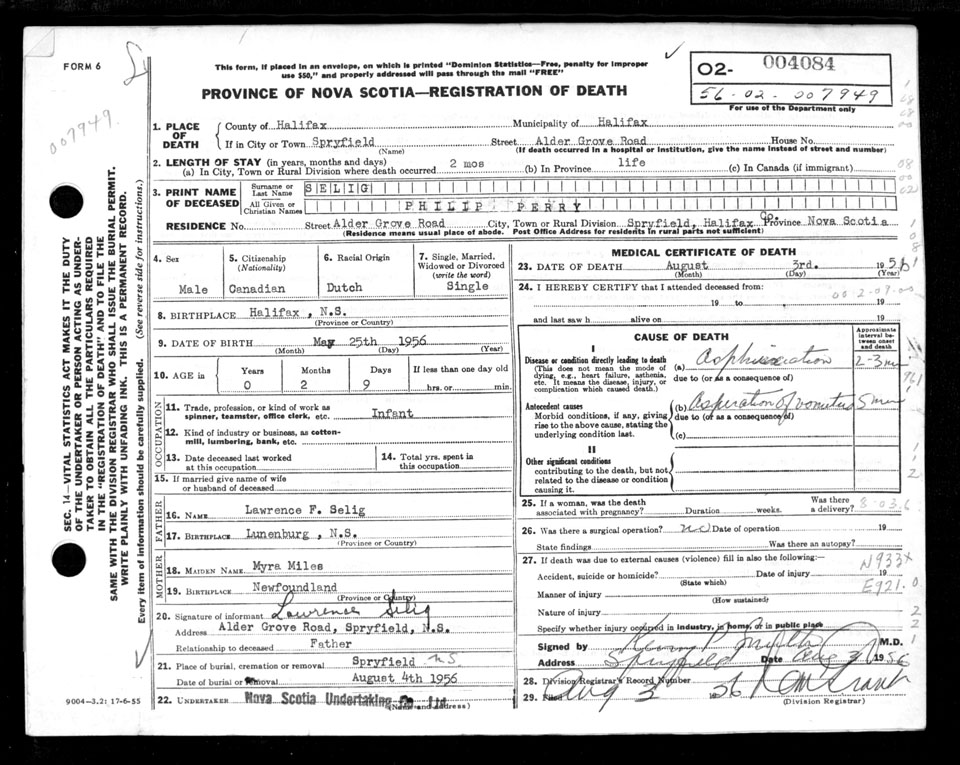 FORM 6
This form, if placed in an envelope, on which is printed "Dominion Statistics—Free, penalty for improper
use $50," and properly addressed will pass through the mail "FREE"
PROVINCE OF NOVA SCOTIA—REGISTRATION OF DEATH
02- 004084
56-02-007949
For use of the Department only
007949.
1. PLACE OF DEATH
County of Halifax Municipality of Halifax
If in City or Town Spryfield Street Alder Grove Road House No.
(Name) (If death occurred in a hospital or institution, give the name instead of street and number)
2. LENGTH OF STAY (in years, months and days)
(a) In City, Town or Rural Division where death occurred 2 mos (b) In Province life (c) In Canada (if immigrant)
3. PRINT NAME OF DECEASED
Surname or Last Name SELIG
All Given or Christian Names PHILIP PERRY
RESIDENCE No. Street Alder Grove Road City, Town or Rural Division Spryfield, Halifax Co. Province Nova Scotia
(Residence means usual place of abode. Post Office Address for residents in rural parts not sufficient)
4. Sex
Male
5. Citizenship
(Nationality)
Canadian
6. Racial Origin
Dutch
7. Single, Married,
Widowed or Divorced
(write the word)
Single
8. BIRTHPLACE Halifax , N.S.
(Province or Country)
9. DATE OF BIRTH May 25th 1956
(Month) (Day) (Year)
10. AGE in
Years Months Days If less than one day old
0 2 9 hrs. or min.
OCCUPATION
11. Trade, profession, or kind of work as
spinner, teamster, office clerk, etc. Infant
12. Kind of industry or business, as cotton-
mill, lumbering, bank, etc.
13. Date deceased last worked
at this occupation
14. Total yrs. spent in
this occupation
15. If married give name of wife
or husband of deceased
FATHER
16. NAME Lawrence F. Selig
17. BIRTHPLACE Lunenburg , N.S.
(Province or Country)
MOTHER
18. MAIDEN NAME Myra Miles
19. BIRTHPLACE Newfoundland
(Province or Country)
20. Signature of informant Lawrence Selig
Address Alder Grove Road, Spryfield, N.S.
Relationship to deceased Father
21. Place of burial, cremation or removal Spryfield NS
Date of burial or removal August 4th 1956
22. UNDERTAKER Nova Scotia Undertaking Co Ltd
(Name and address)
MEDICAL CERTIFICATE OF DEATH
23. DATE OF DEATH August 3rd. 1956
(Month) (Day) (Year)
24. I HEREBY CERTIFY that I attended deceased from:
19 to 19
and last saw h alive on 19
CAUSE OF DEATH
Approximate
interval be-
tween onset
and death
I
Disease or condition directly leading to death
(This does not mean the mode of
dying, e.g., heart failure, asthenia,
etc. It means the disease, injury, or
complication which caused death.)
(a) Asphixiation 2-3 min
due to (or as a consequence of)
Antecedent causes
Morbid conditions, if any, giving
rise to the above cause, stating the
underlying condition last.
(b) Asperation of vomitus 5 min
due to (or as a consequence of)
(c)
II
Other significant conditions
contributing to the death, but not
related to the disease or condition
causing it.
25. If a woman, was the death
associated with pregnancy? Duration weeks. Was there
a delivery?
8-03.6
26. Was there a surgical operation? no Date of operation 19
State findings Was there an autopsy?
27. If death was due to external causes (violence) fill in also the following:—
Accident, suicide or homicide? Date of injury 19
(State which)
N933X
E921.0
Manner of injury
(How sustained)
Nature of injury
Specify whether injury occurred in industry, in home, or in public place
Signed by M.D.
Address Spryfield Date Aug 3 1956
28. Division Registrar's Record Number
29. Filed Aug 3 1956
(Division Registrar)
9004-3.2: 17-6-55
SEC. 14—VITAL STATISTICS ACT MAKES IT THE DUTY
OF THE UNDERTAKER OR PERSON ACTING AS UNDER-
TAKER TO OBTAIN ALL THE PARTICULARS REQUIRED
IN THE "REGISTRATION OF DEATH" AND TO FILE THE
SAME WITH THE DIVISION REGISTRAR WHO SHALL ISSUE THE BURIAL PERMIT.
WRITE PLAINLY WITH UNFADING INK. THIS IS A PERMANENT RECORD.
Every item of information should be carefully supplied. (See reverse side for instructions.)